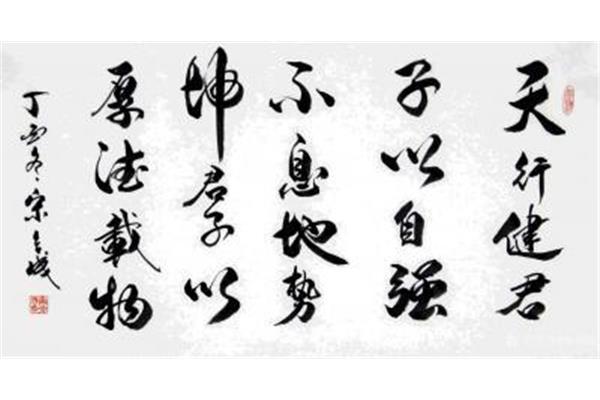 天行健君
子以自强
不息地势
坤君子以
厚德载物
丁酉冬宋